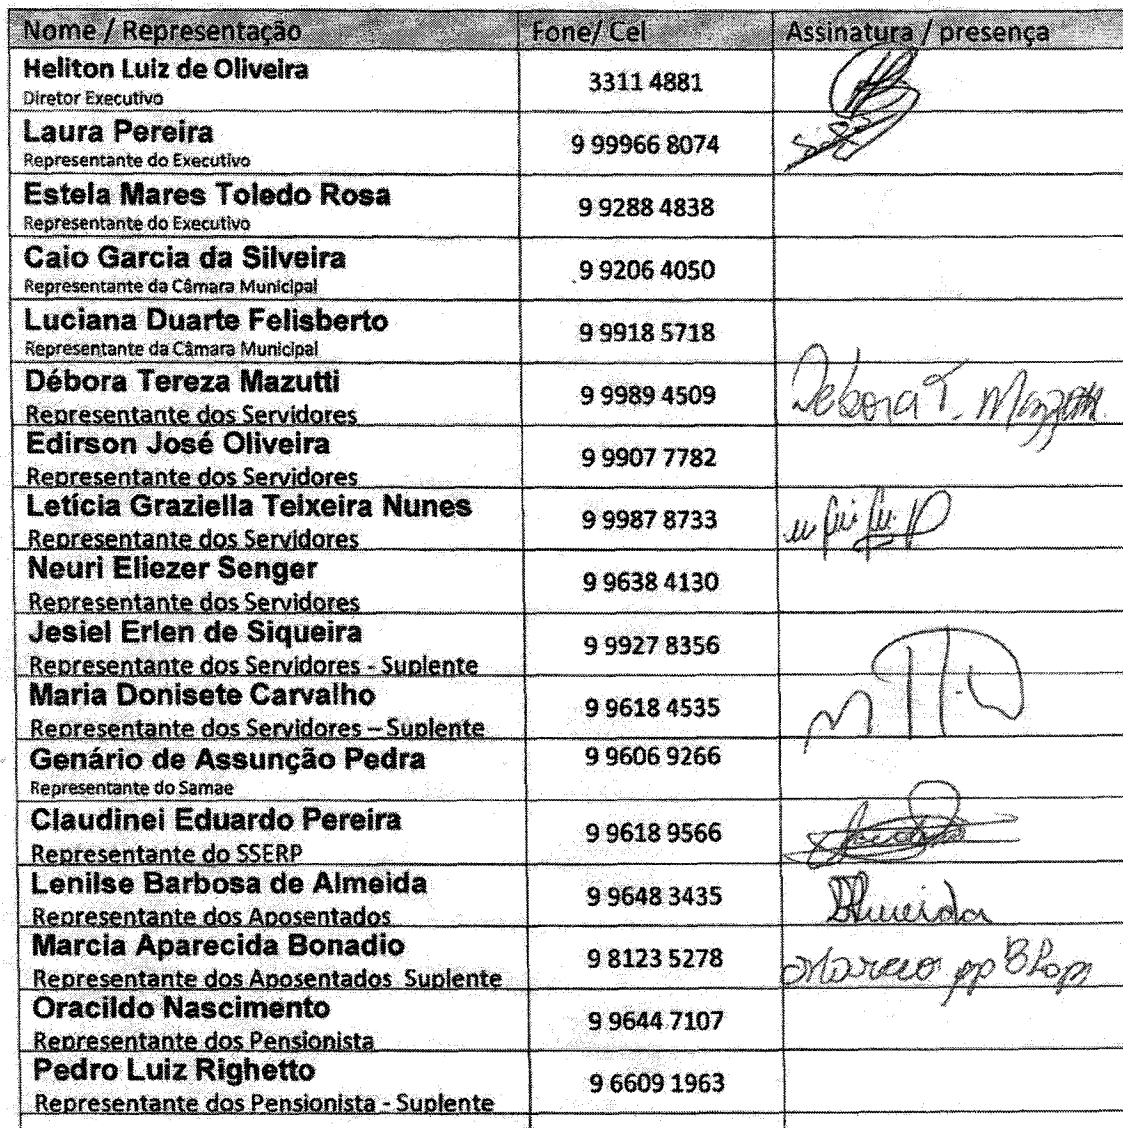 Nome / Representação Fone/ Cel Assinatura / presença
Heliton Luiz de Oliveira
Diretor Executivo
3311 4881
Laura Pereira
Representante do Executivo
9 99966 8074
Estela Mares Toledo Rosa
Representante do Executivo
9 9288 4838
Caio Garcia da Silveira
Representante da Câmara Municipal
9 9206 4050
Luciana Duarte Felisberto
Representante da Câmara Municipal
9 9918 5718
Débora Tereza Mazutti
Representante dos Servidores
9 9989 4509
Debora T.
Edirson José Oliveira
Representante dos Servidores
9 9907 7782
Letícia Graziella Teixeira Nunes
Representante dos Servidores
9 9987 8733
Neuri Eliezer Senger
Representante dos Servidores
9 9638 4130
Jesiel Erlen de Siqueira
Representante dos Servidores - Suplente
9 9927 8356
Maria Donisete Carvalho
Representante dos Servidores – Suplente
9 9618 4535
Genário de Assunção Pedra
Representante do Samae
9 9606 9266
Claudinei Eduardo Pereira
Representante do SSERP
9 9618 9566
Lenilse Barbosa de Almeida
Representante dos Aposentados
9 9648 3435
Almeida
Marcia Aparecida Bonadio
Representante dos Aposentados Suplente
9 8123 5278
Oracildo Nascimento
Representante dos Pensionista
9 9644 7107
Pedro Luiz Righetto
Representante dos Pensionista - Suplente
9 6609 1963